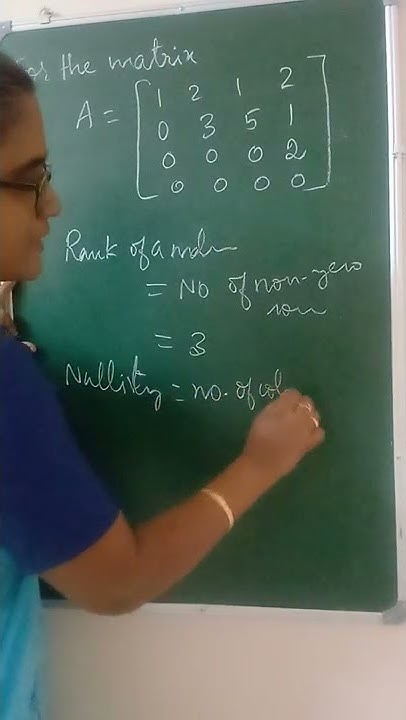 For the matrix
A = [ 1 2 1 2
0 3 5 1
0 0 0 2
0 0 0 0 ]
Rank of a
= No of non-zero
= 3
Nullity = no. of col